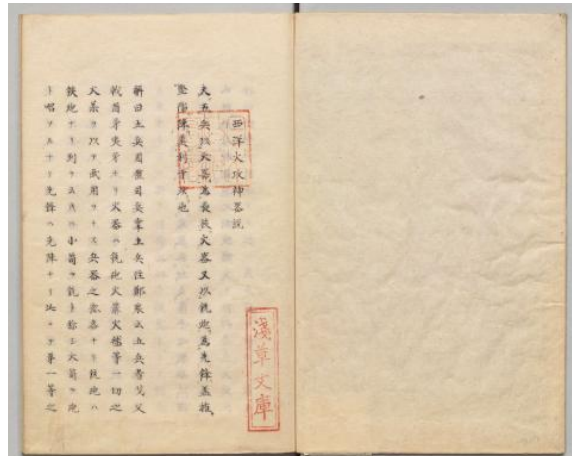 西洋火攻神器説
夫五兵以火器為最銃火器又以銃炮為先鋒盖摧
堅陷陳莫利於此也
解曰五兵周禮司兵掌五兵註鄭衆云五兵者戈殳
戟酋矛夷矛ナリ火器ハ銃砲火箭火毬等一切之
火薬ヲ以テ武用ヲナス兵器之惣名ナリ銃砲ハ
鉄炮ナリ別ツ五兵ハ小筒ヲ銃ト称シ大筒ヲ炮
ト唱フルナリ先鋒ハ先陳ナリ此ニテ第一等之
淺草文庫